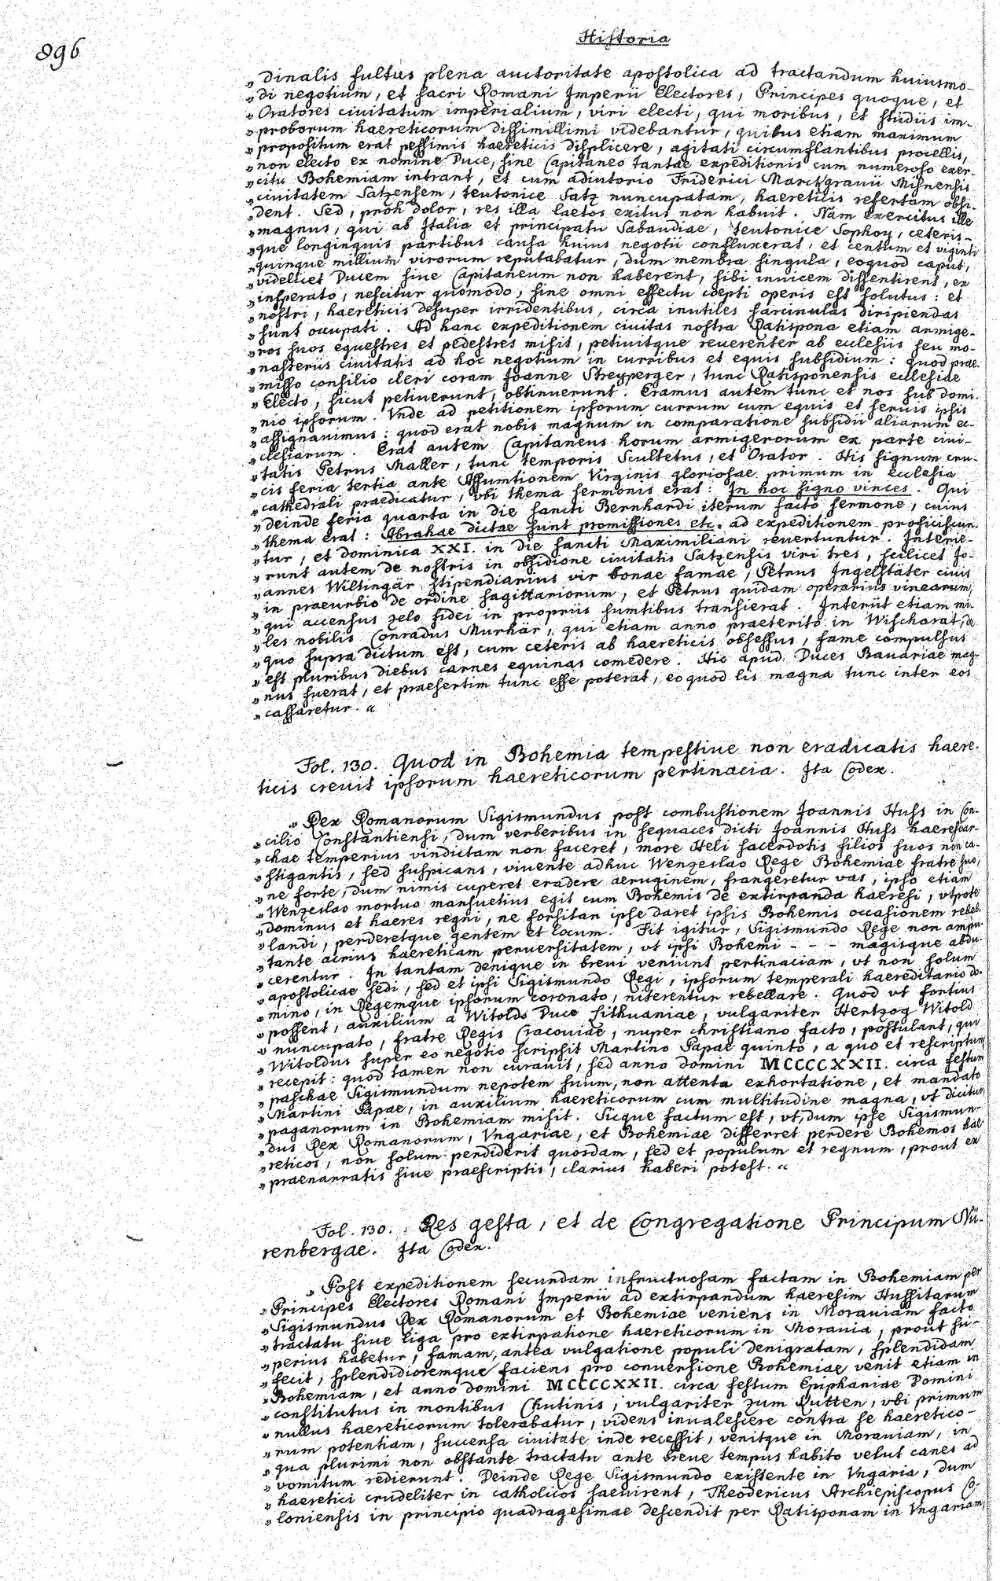 896
Historia
„ dinalis fultus plena auctoritate apostolica ad tractandum huiusmo-
„ di negotium, et sacri Romani Imperii Electores, Principes quoque, et
„ Oratores ciuitatum imperialium, viri electi, qui moribus, et studiis im-
„ proborum haereticorum dissimillimi videbantur, quibus etiam maximum
„ propositum erat pessimis haereticis displicere, agitati circumstantibus procellis,
„ non electo ex nomine Duce, sine Capitaneo tantae expeditionis cum numeroso exer-
„ citu Bohemiam intrant, et cum adiutorio Friderici Marchgrauii Misnensis
„ ciuitatem Satzensem, teutonice Satz nuncupatam, haereticis refertam obsi-
„ dent. Sed, proh dolor, res illa laetos exitus non habuit. Nam exercitus ille
„ magnus, qui ab Italia et principatu Sabaudiae, teutonice Sophoy, ceteris-
„ que longinquis partibus causa huius negotii confluxerat, et centum et viginti
„ quinque millium virorum reputabatur, dum membra singula, eoquod caput,
„ videlicet Ducem siue Capitaneum non haberent, sibi inuicem dissentirent, ex
„ insperato, nescitur quomodo, sine omni effectu coepti operis est solutus: et
„ nostri, haereticis desuper irridentibus, circa inutiles sarcinulas diripiendas
„ sunt occupati. Ad hanc expeditionem ciuitas nostra Ratispona etiam armige-
„ ros suos equestres et pedestres misit, petiuitque reuerenter ab ecclesiis seu mo-
„ nasteriis ciuitatis ad hoc negotium in curribus et equis subsidium: quod prae-
„ misso consilio cleri coram Joanne Streyperger, tunc Ratisponensis ecclesiae
„ Electo, sicut petiuerunt, obtinuerunt. Eramus autem tunc et nos sub domi-
„ nio ipsorum. Vnde ad petitionem ipsorum currum cum equis et seruis ipsis
„ assignauimus: quod erat nobis magnum in comparatione subsidii aliarum ec-
„ clesiarum. Erat autem Capitaneus horum armigerorum ex parte ciui-
„ tatis Petrus Maller, tunc temporis Scultetus, et Orator. His signum cru-
„ cis feria tertia ante Assumtionem Virginis gloriosae primum in ecclesia
„ cathedrali praedicatur, vbi thema sermonis erat: In hoc signo vinces. Qui
„ deinde feria quarta in die sancti Bernhardi iterum facto sermone, cuius
„ thema erat: Abrahae dictae sunt promissiones etc. ad expeditionem proficiscun-
„ tur, et dominica XXI. in die sancti Maximiliani reuertuntur. Interie-
„ runt autem de nostris in obsidione ciuitatis Satzensis viri tres, scilicet Jo-
„ annes Wiltingär stipendiarius vir bonae famae, Petrus Ingelstäter ciuis
„ in praeurbio de ordine sagittariorum, et Petrus quidam operarius vinearum,
„ qui accensus zelo fidei in propriis sumtibus transierat. Interiit etiam mi-
„ les nobilis Conradus Murhär, qui etiam anno praeterito in Wischarat, de
„ quo supra dictum est, cum ceteris ab haereticis obsessus, fame compulsus
„ est pluribus diebus carnes equinas comedere. Hic apud Duces Bauariae mag-
„ nus fuerat, et praesertim tunc esse poterat, eo quod lis magna tunc inter eos
„ cassaretur. “
Fol. 130. Quod in Bohemia tempestiue non eradicatis haere-
ticis creuit ipsorum haereticorum pertinacia. Ita Codex.
„ Rex Romanorum Sigismundus post combustionem Joannis Huss in Con-
„ cilio Constantiensi, dum verberibus in sequaces dicti Joannis Huss haeresiar-
„ chae temperius vindictam non faceret, more Heli sacerdotis filios suos non ca-
„ stigantis, sed suspicans, viuente adhuc Wenzeslao Rege Bohemiae fratre suo,
„ ne forte, dum nimis cuperet eradere aeruginem, frangeretur vas, ipso etiam
„ Wenzeslao mortuo mansuetius egit cum Bohemis de extirpanda haeresi, vtpote
„ dominus et haeres regni, ne forsitan ipse daret ipsis Bohemis occasionem rebel-
„ landi, perderetque gentem et locum. Fit igitur, Sigismundo Rege non ampu-
„ tante acrius haereticam peruersitatem, vt ipsi Bohemi - - - magisque abdu-
„ cerentur. In tantam denique in breui veniunt pertinaciam, vt non solum
„ apostolicae sedi, sed et ipsi Sigismundo Regi, ipsorum temperali haereditario do-
„ mino, in Regemque ipsorum coronato, niterentur rebellare. Quod vt fortius
„ possent, auxilium a Witoldo Duce Lithuaniae, vulgariter Hertzog Witold
„ nuncupato, fratre Regis Cracouiae, nuper christiano facto, postulant, qui
„ Witoldus super eo negotio scripsit Martino Papae quinto, a quo et rescriptum
„ recepit: quod tamen non curauit, sed anno domini MCCCCXXII. circa festum
„ paschae Sigismundum nepotem suum, non attenta exhortatione, et mandato
„ Martini Papae, in auxilium haereticorum cum multitudine magna, vt dicitur
„ paganorum in Bohemiam misit. Sicque factum est, vt, dum ipse Sigismun-
„ dus Rex Romanorum, Vngariae, et Bohemiae differret perdere Bohemos hae-
„ reticos, non solum perdiderit quosdam, sed et populum et regnum, prout ex
„ praenarratis siue praescriptis, clarius haberi potest. “
Fol. 130. Res gesta, et de Congregatione Principum Nü-
renbergae. Ita Codex.
„ Post expeditionem secundam infructuosam factam in Bohemiam per
„ Principes Electores Romani Imperii ad extirpandum haeresim Hussitarum
„ Sigismundus Rex Romanorum et Bohemiae veniens in Morauiam facto
„ tractatu siue liga pro extirpatione haereticorum in Morauia, prout su-
„ perius habetur, famam, antea vulgatione populi denigratam, splendidam
„ fecit, splendidioremque faciens pro conuersione Bohemiae venit etiam in
„ Bohemiam, et anno domini MCCCCXXII. circa festum Epiphaniae Domini
„ constitutus in montibus Chutinis, vulgariter zum Kutten, vbi primum
„ nullus haereticorum tolerabatur, videns inualescere contra se haeretico-
„ rum potentiam, succensa ciuitate inde recessit, venitque in Morauiam, in
„ qua plurimi non obstante tractatu ante breue tempus habito velut canes ad
„ vomitum redierunt. Deinde Rege Sigismundo existente in Vngaria, dum
„ haeretici crudeliter in catholicos saeuirent, Theodericus Archiepiscopus Co-
„ loniensis in principio quadragesimae descendit per Ratisponam in Vngariam